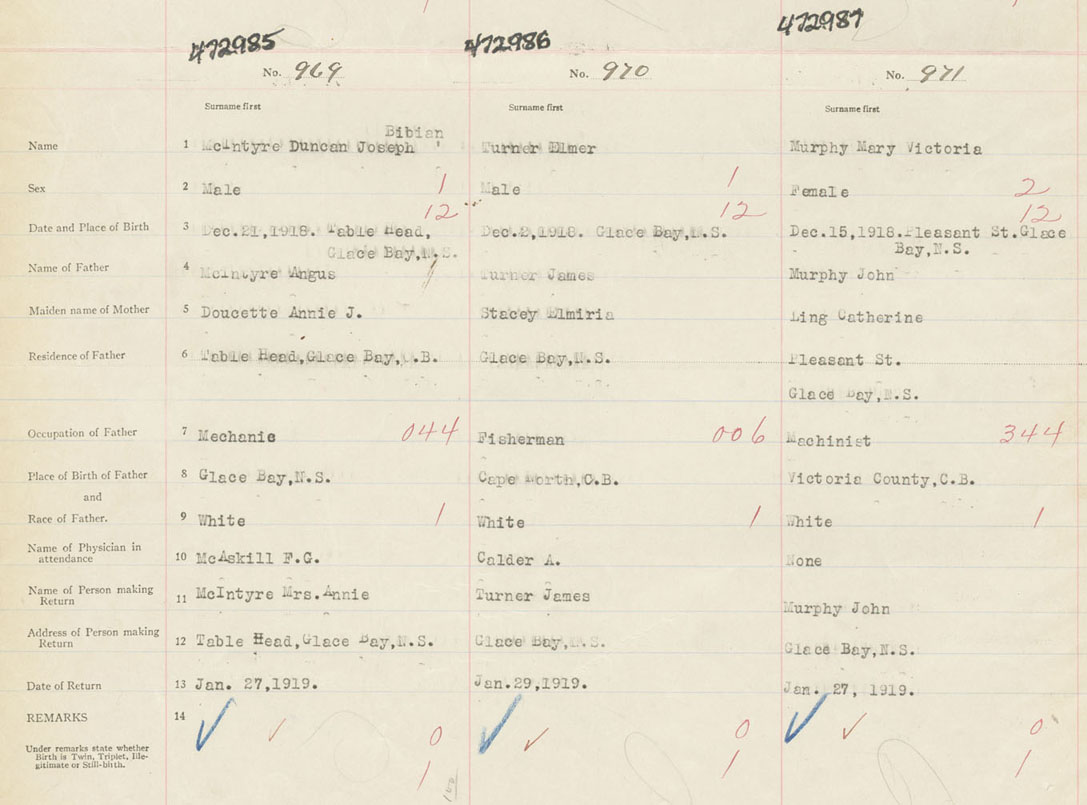 472985 472986 472987
No. 969 No. 970 No. 971
Surname first Surname first Surname first
Bibian
Name 1 McIntyre Duncan Joseph ' Turner Elmer Murphy Mary Victoria
Sex 2 Male 1 Male 1 Female 2
12 12 12
Date and Place of Birth 3 Dec.21,1918. Table Head, Dec.2,1918. Glace Bay,N.S. Dec.15,1918.Pleasant St.Glace
Glace Bay,N.S. Bay,N.S.
Name of Father 4 McIntyre Angus Turner James Murphy John
Maiden name of Mother 5 Doucette Annie J. Stacey Elmiria Ling Catherine
Residence of Father 6 Table Head,Glace Bay,C.B. Glace Bay,N.S. Pleasant St.
Glace Bay,N.S.
Occupation of Father 7 Mechanic 044 Fisherman 006 Machinist 344
Place of Birth of Father 8 Glace Bay,N.S. Cape North,C.B. Victoria County,C.B.
and
Race of Father. 9 White 1 White 1 White 1
Name of Physician in
attendance 10 McAskill F.G. Calder A. None
Name of Person making
Return 11 McIntyre Mrs.Annie Turner James Murphy John
Address of Person making
Return 12 Table Head,Glace Bay,N.S. Glace Bay,N.S. Glace Bay,N.S.
Date of Return 13 Jan. 27,1919. Jan.29,1919. Jan. 27, 1919.
REMARKS 14
0 0 0
Under remarks state whether
Birth is Twin, Triplet, Ille-
gitimate or Still-birth.
1 1 1